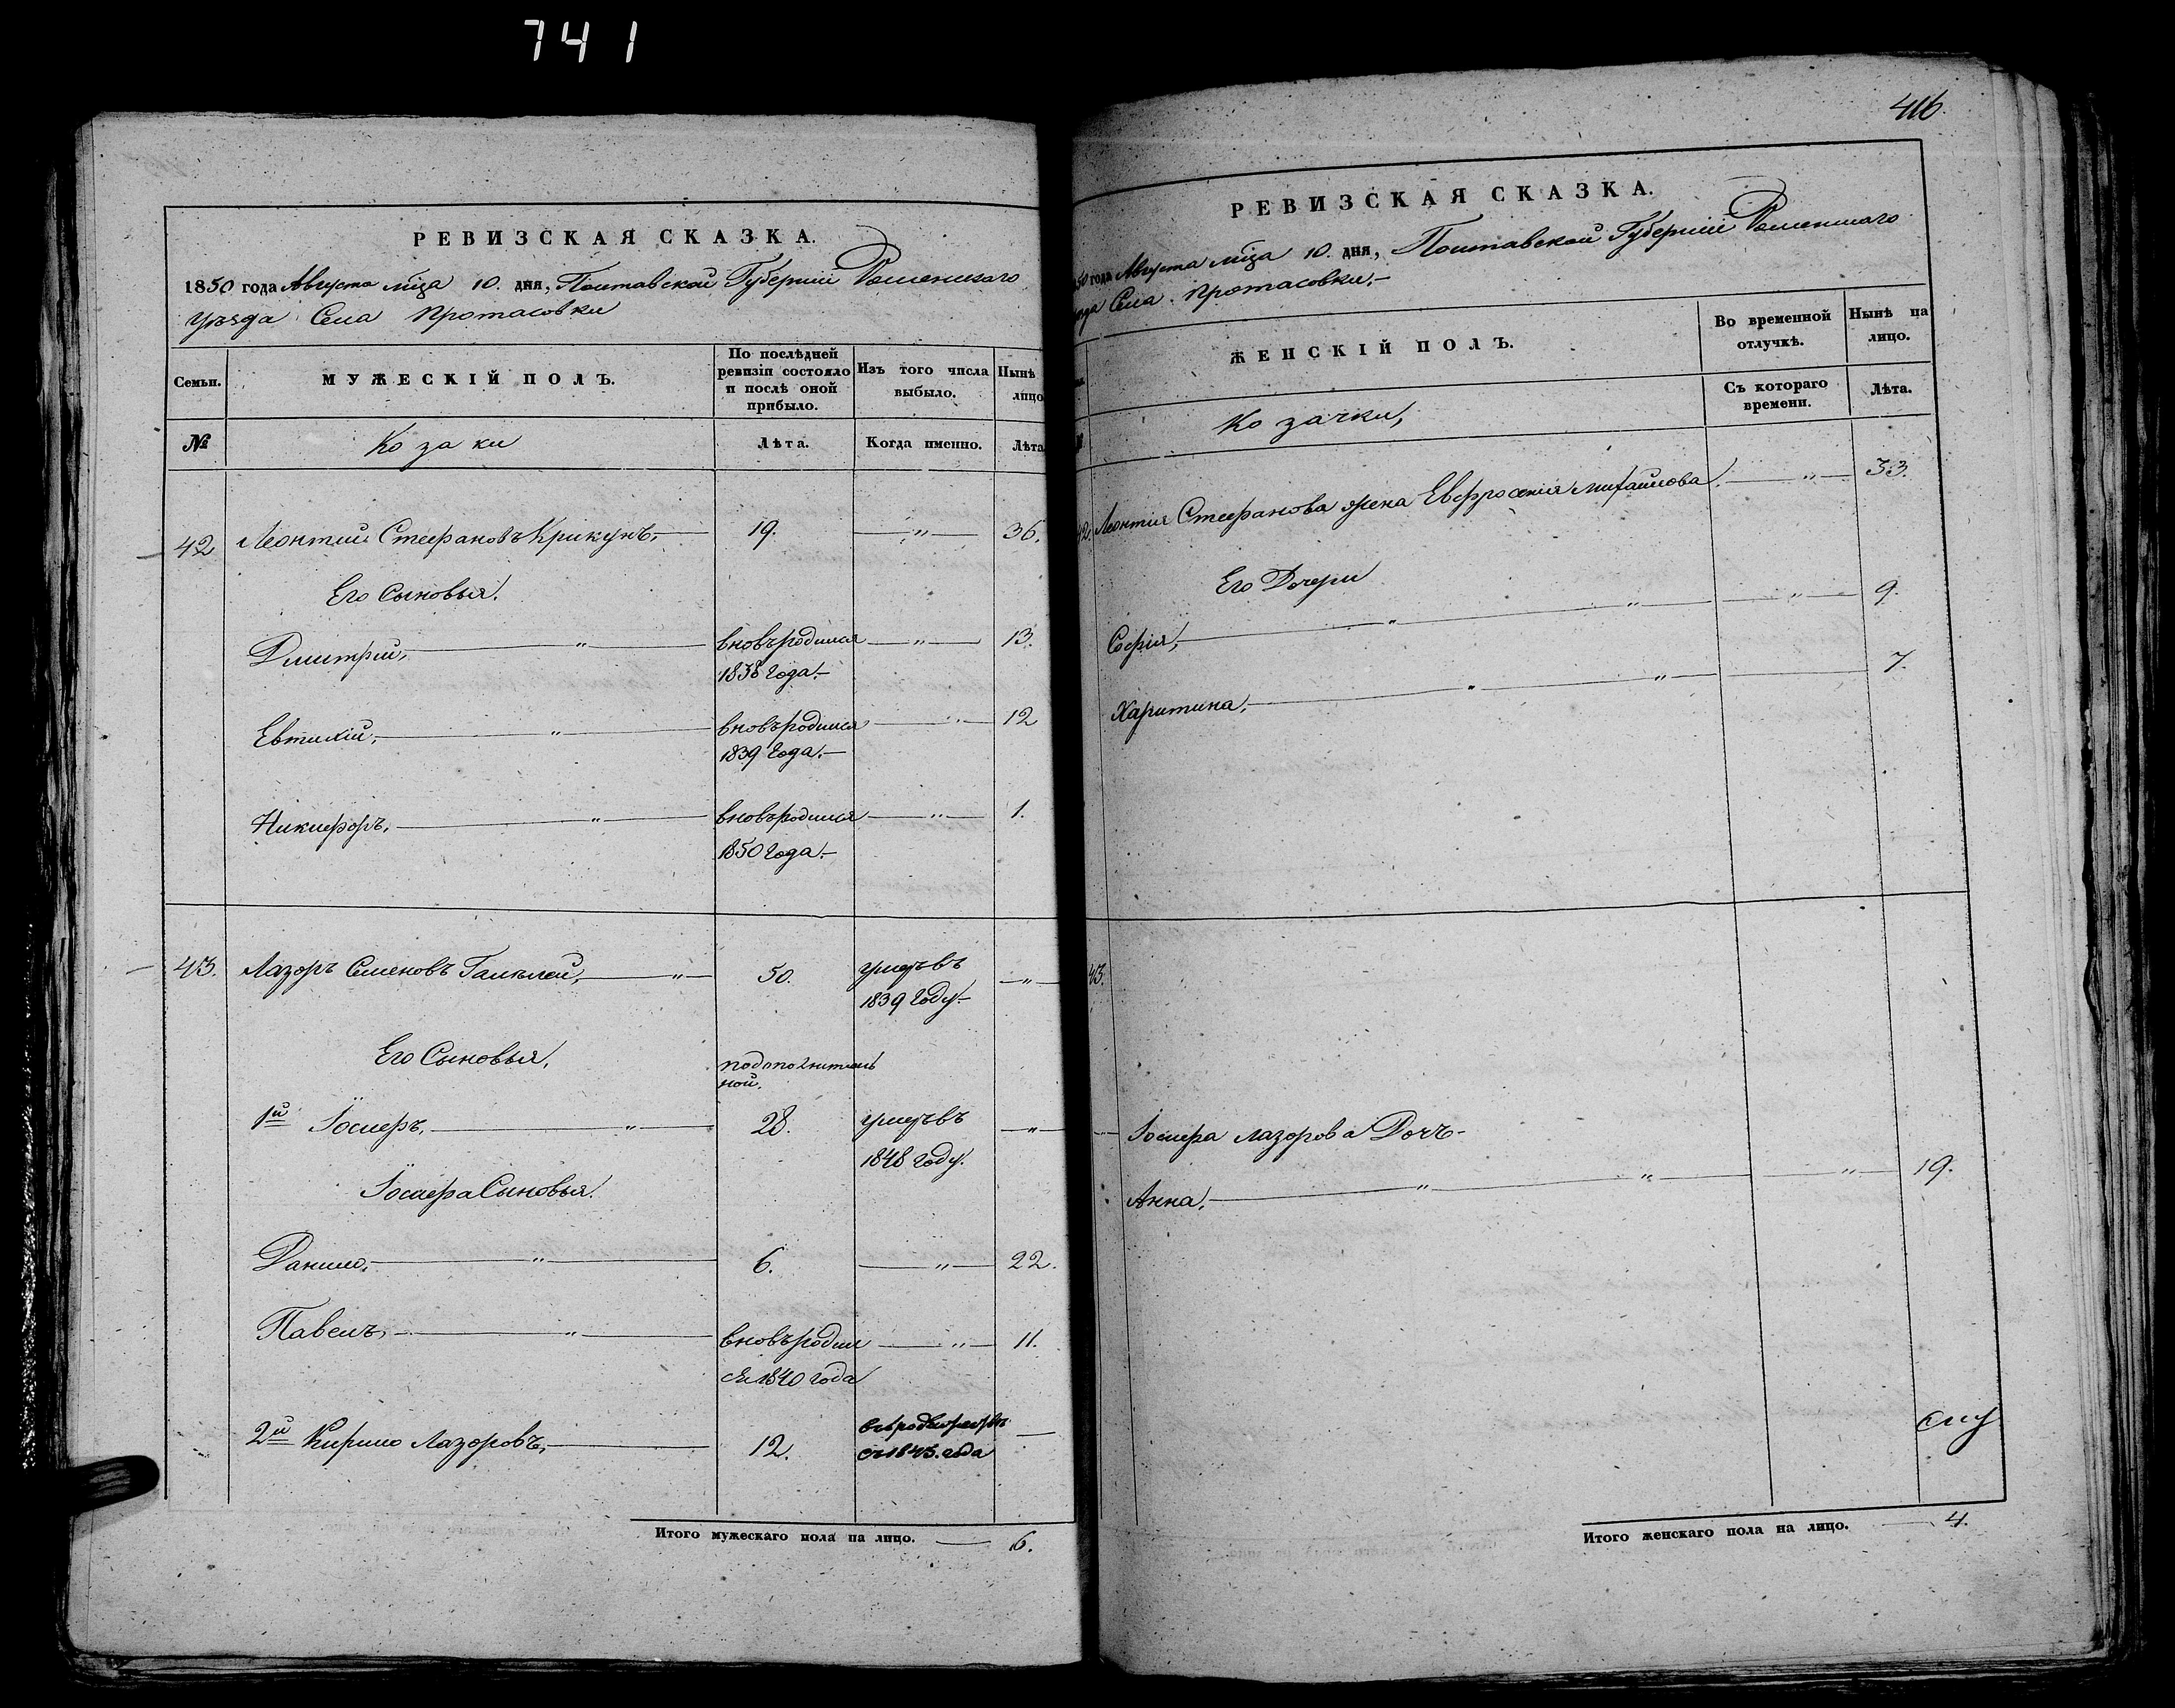 741
РЕВИЗСКАЯ СКАЗКА.
1850 года Августа мца 10. дня, Полтавской Губернiи Роменскаго
уѣзда Села Протасовки
Семьи.
МУЖЕСКІЙ ПОЛЪ.
По послѣдней ревизіи состояло и послѣ оной прибыло.
Изъ того числа выбыло.
Нынѣ лицо
№
Козаки
Лѣта.
Когда именно.
Лѣта
42 Леонтий Стефановъ Крикунъ, 19. — " — 36.
Его Сыновья.
Дмитрий, " вновьродился — " — 13.
1838 года.-
Евтихій, " вновьродился — " — 12
1839 года.-
Никифоръ, " вновьродился — " — 1.
1850 года.-
43. Лазорь Семеновъ 50. умеръ въ — " —
1839 году.-
Его Сыновья,
подополнитель
ной.
1й Іосифъ, " 28. умеръ въ — " —
1848 году.
Іосифа Сыновья.
Данило, " 6. — " — 22.
Павелъ, " вновьродил — " — 11.
ся 1840 года
2й Кирило Лазоровъ, 12. —
съ 1845. года
Итого мужескаго пола на лицо. — 6.
416.
РЕВИЗСКАЯ СКАЗКА.
50 года Августа мца 10. дня, Полтавской Губернiи Роменскаго
Села Протасовки.-
ЖЕНСКІЙ ПОЛЪ.
Во временной отлучкѣ.
Нынѣ на лицо.
Съ котораго времени.
Лѣта.
Козачки,
42. Леонтия Стефанова жена Евфросения Михайлова. — " — 33.
Его Дочери
Софія, " " — " — 9.
Харитина, " " — 7.
43.
Іосифа Лазорова Дочь-
Анна, " " — " — 19.
Итого женскаго пола на лицо. — 4.